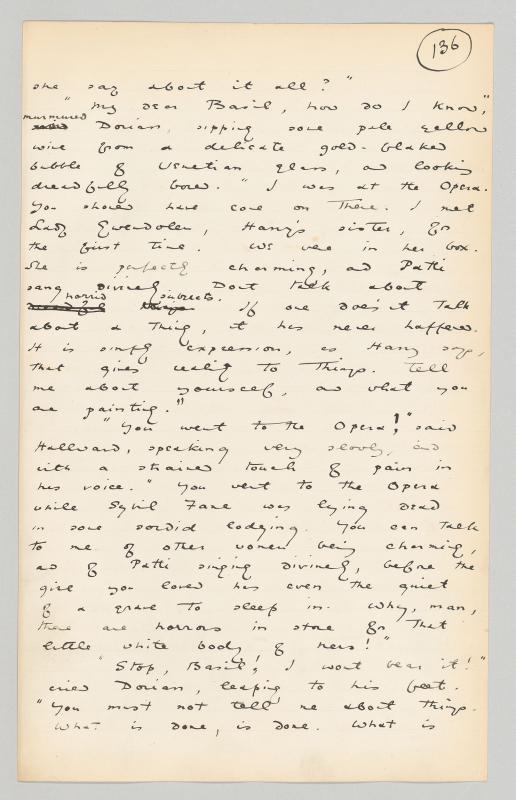 136
she say about it all?"
"My dear Basil, how do I know,"
murmured
said Dorian, sipping some pale yellow
wine from a delicate gold-flaked
bubble of Venetian glass, and looking
dreadfully bored. "I was at the Opera.
You should have come on There. I met
Lady Gwendolen, Harry's sister, for
the first time. We were in her box.
She is perfectly charming, and Patti
sang divinely. Dont talk about
horrid subjects.
dreadful things. If one does'nt talk
about a Thing, it has never happened.
It is simply expression, as Harry says,
that gives reality to Things. Tell
me about yourself, and what you
are painting."
"You went to the Opera!," said
Hallward, speaking very slowly, and
with a strained touch of pain in
his voice. "You went to the Opera
while Sybil Vane was lying dead
in some sordid lodging. You can talk
to me of other women being charming,
and of Patti singing divinely, before the
girl you loved has even the quiet
of a grave to sleep in. Why, man,
there are horrors in store for that
little white body of hers!"
"Stop, Basil, I wont hear it!"
cried Dorian, leaping to his feet.
"You must not tell me about things.
What is done, is done. What is